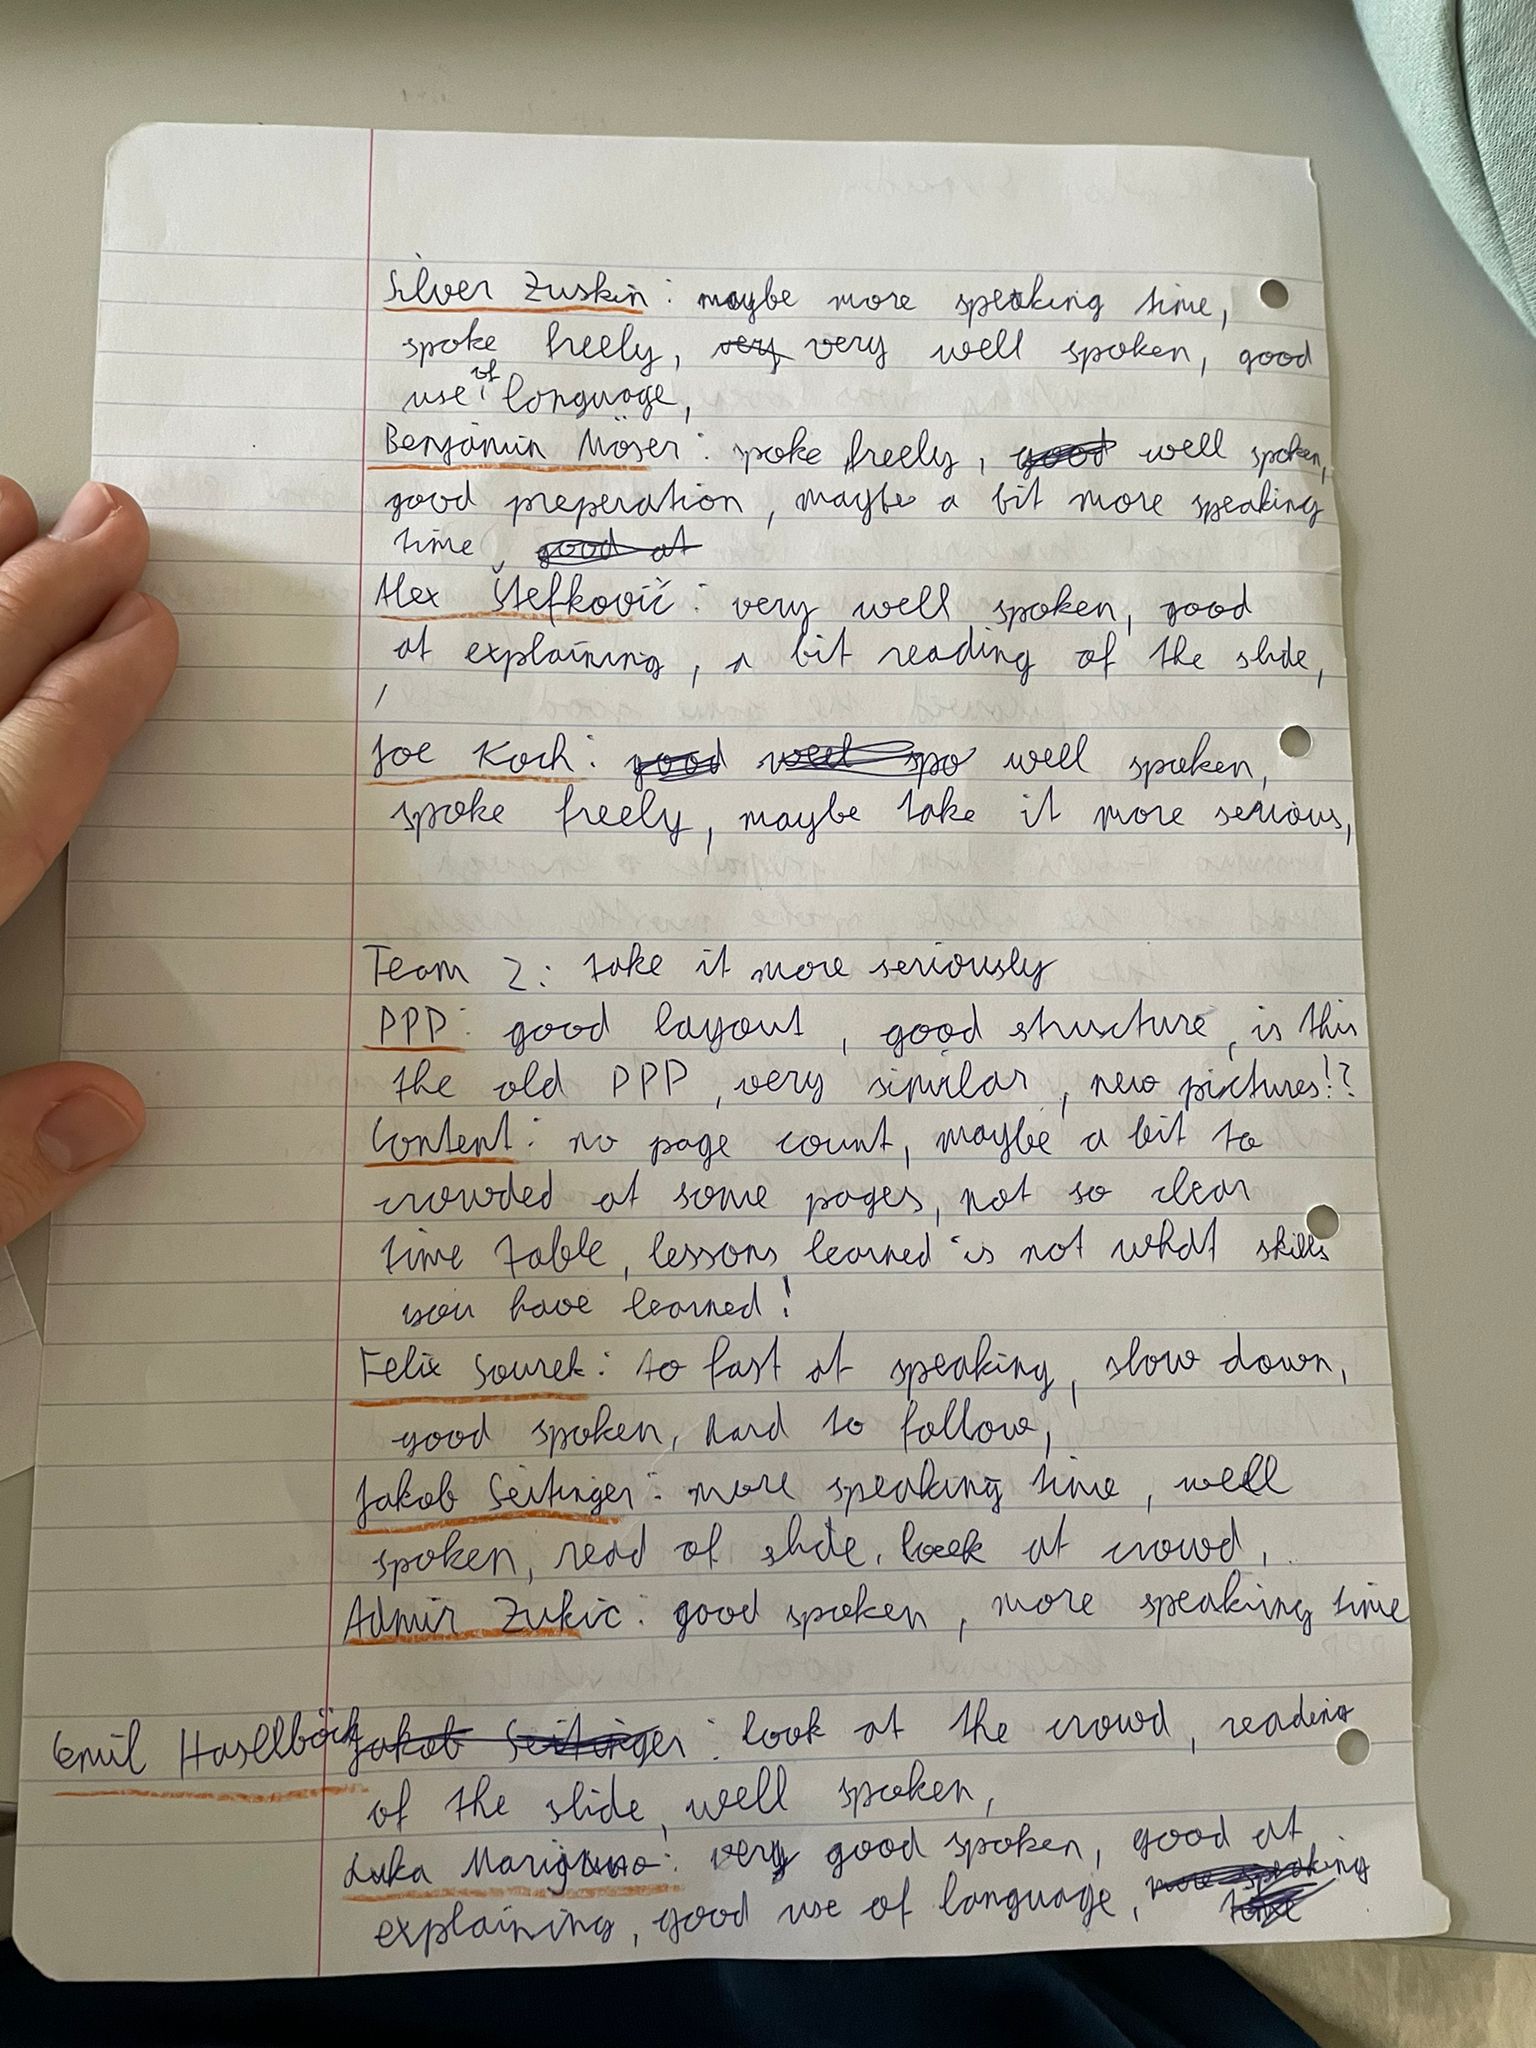 Silver Zuskin: maybe more speaking time,
spoke freely, very very well spoken, good
use of language,
Benjamin Möser: spoke freely, good well spoken,
good preperation, maybe a bit more speaking
time, good at
Alex Štefkovič: very well spoken, good
at explaining, a bit reading of the slide,
Joe Koch: good well spo well spoken,
spoke freely, maybe take it more serious,
Team 2: take it more seriously
PPP: good layout, good structure, is this
the old PPP, very similar, new pictures!?
Content: no page count, maybe a bit to
crowded at some pages, not so clear
time table, lessons learned is not what skills
you have learned!
Felix Sourek: to fast at speaking, slow down,
good spoken, hard to follow,
Jakob Seitinger: more speaking time, well
spoken, read of slide, look at crowd,
Admir Zukic: good spoken, more speaking time
Emil Haselböck Jakob Seitinger: look at the crowd, reading
of the slide, well spoken,
Luka: very good spoken, good at
explaining, good use of language, more speaking
time